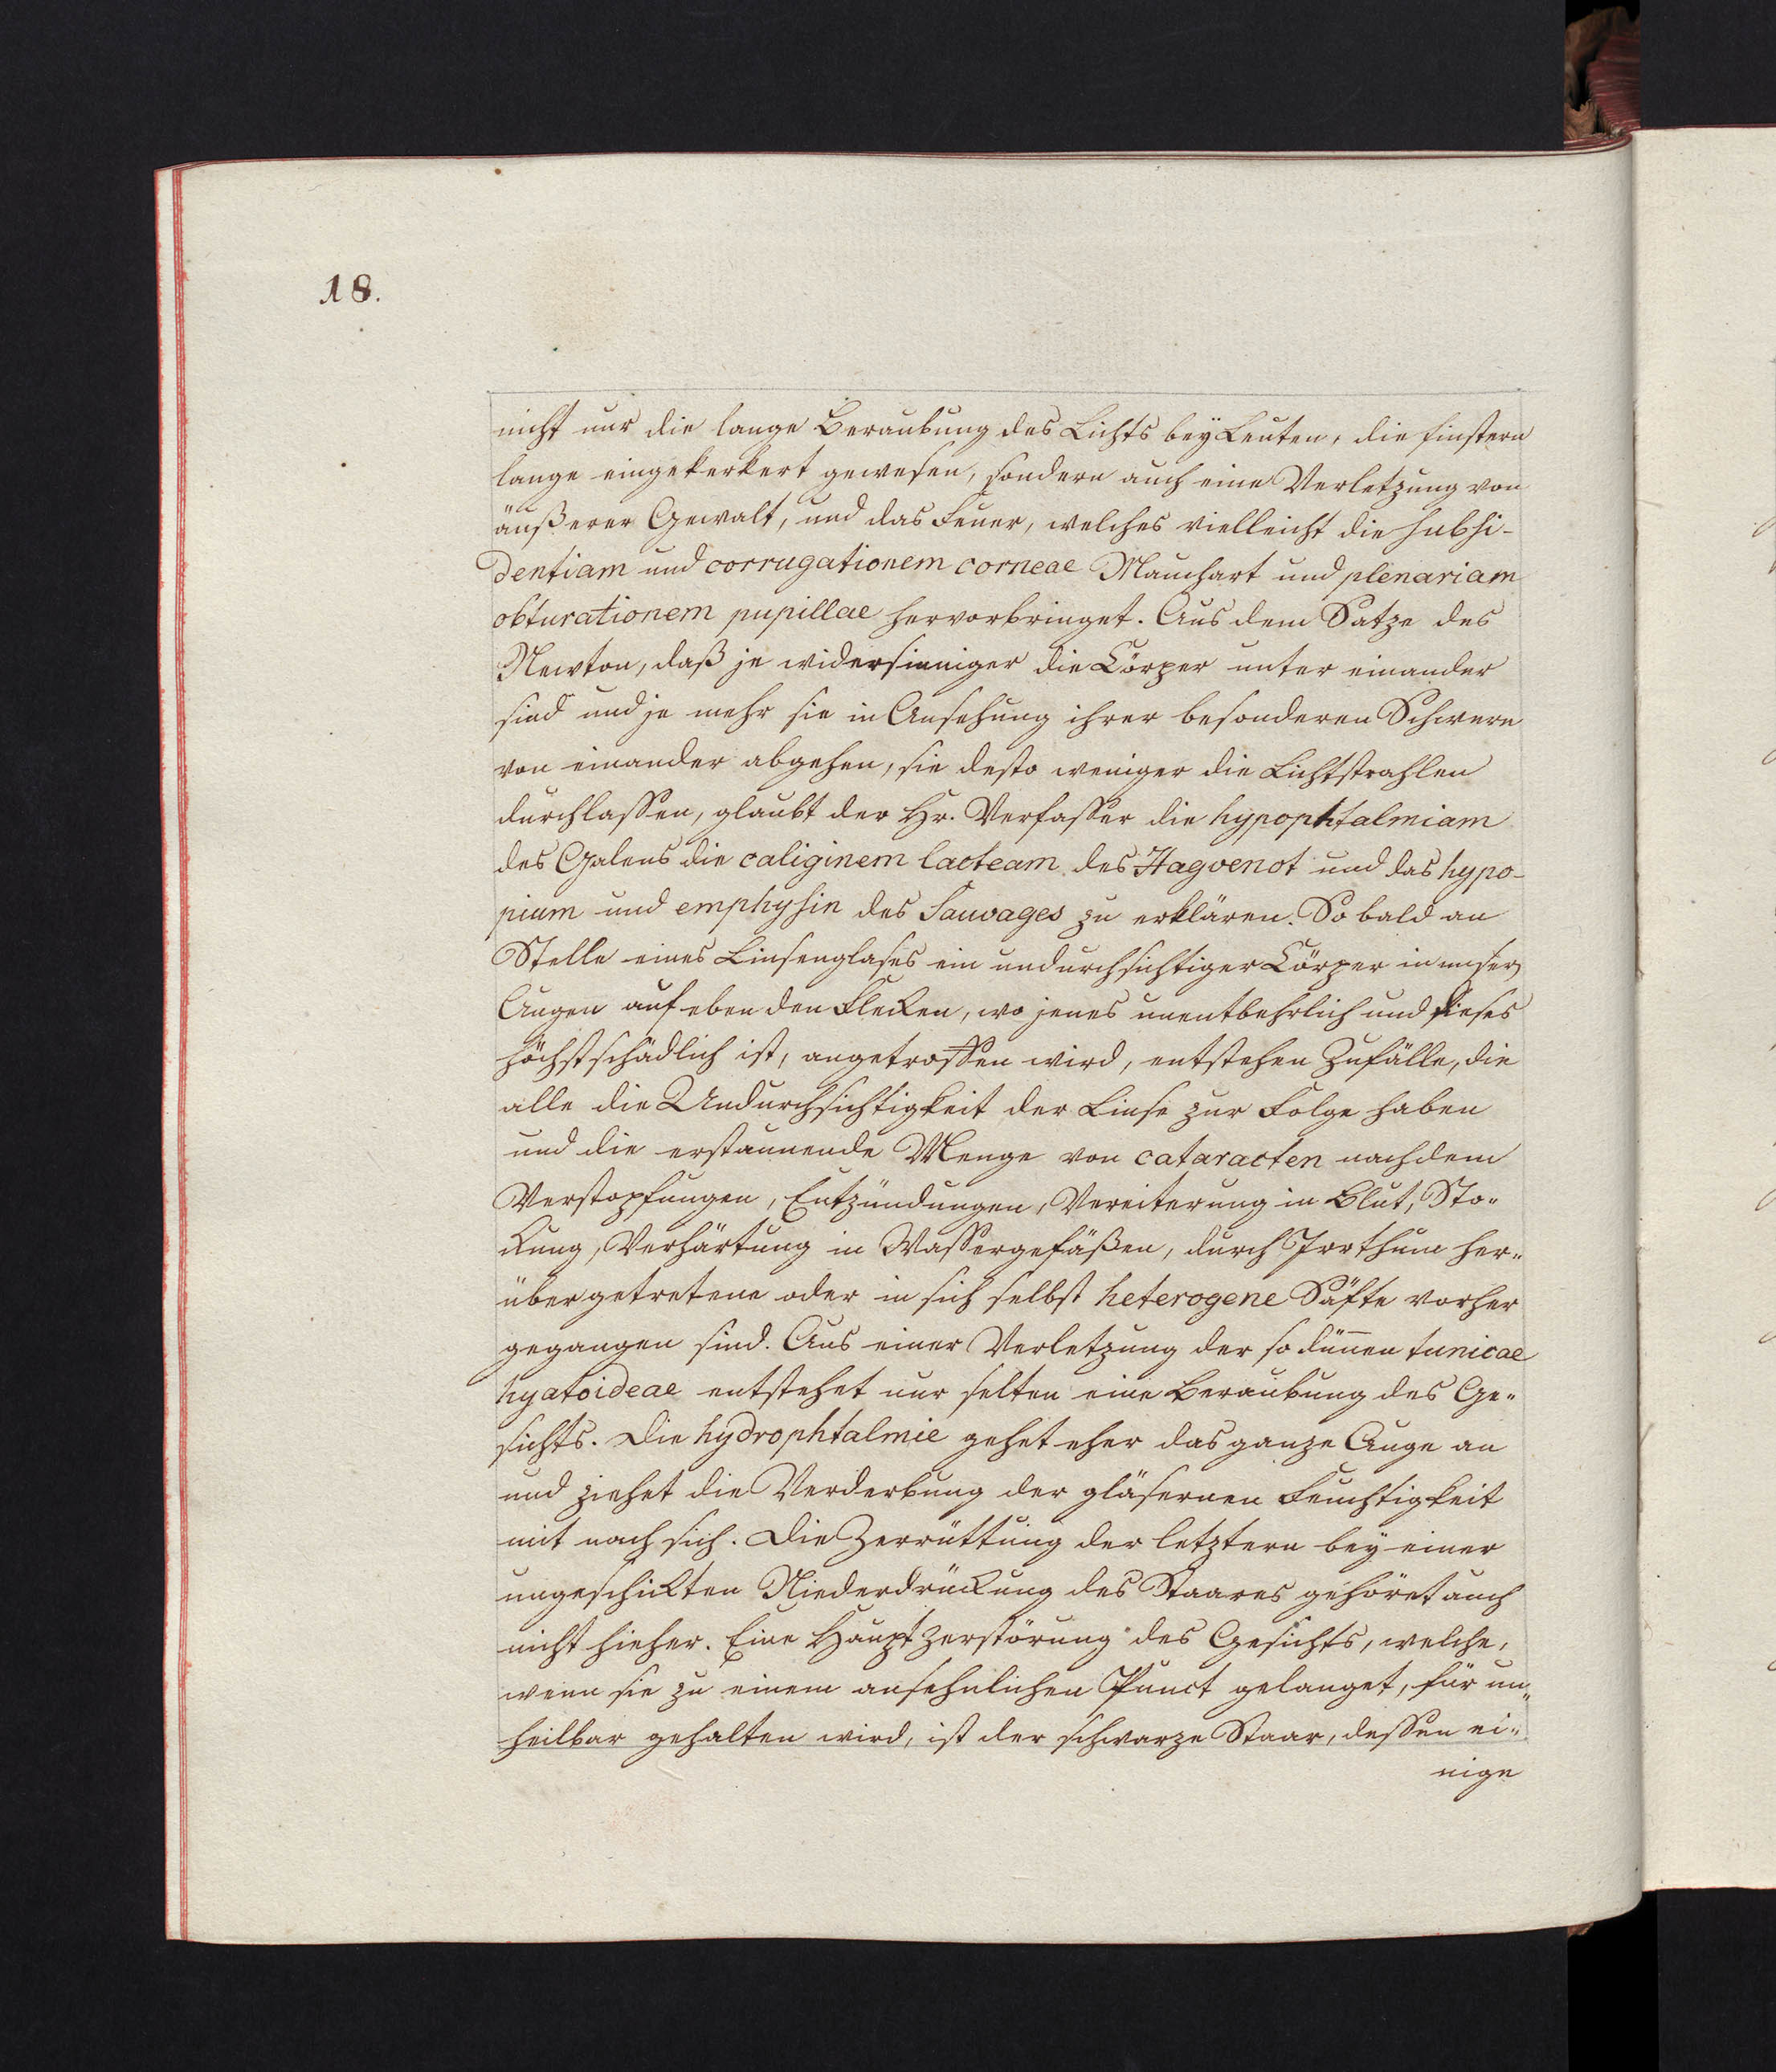 18.
nicht nur die lange Beraubung des Lichts bey Leuten, die finstern
lange eingekerkert gewesen, sondern auch eine Verletzung von
äußerer Gewalt, und das Feuer, welches vielleicht die subsi-
dentiam und corrugationem corneae Mauchart und plenariam
obturationem pupillae hervorbringet. Aus dem Satze des
Newton, daß je widersinniger die Cörper unter einander
sind und je mehr sie in Ansehung ihrer besonderen Schwere
von einander abgehen, sie desto weniger die Lichtstrahlen
durchlassen, glaubt der Hr. Verfasser die hypophtalmiam
des Galens die caliginem lacteam des Hagvenot und das hypo-
pium und emphysin des Sauvages zu erklären. So bald an
Stelle eines Linsenglases ein undurchsichtiger Cörper in unsern
Augen auf eben den Flecken, wo jenes unentbehrlich und dieses
höchstschädlich ist, angetroffen wird, entstehen Zufälle, die
alle die Undurchsichtigkeit der Linse zur Folge haben
und die erstaunende Menge von cataracten nachdem
Verstopfungen, Entzündungen, Vereiterung in Blut, Sto"
ckung, Verhärtung in Wassergefäßen, durch Irrthum her"
übergetretene oder in sich selbst heterogene Säfte vorher
gegangen sind. Aus einer Verletzung der so dünnen tunicae
hyatoideae entstehet nur selten eine Beraubung des Ge"
sichts. Die hydrophtalmie gehet eher das ganze Auge an
und ziehet die Verderbung der gläsernen Feuchtigkeit
mit nach sich. Die Zerrüttung der letztern bey einer
ungeschickten Niederdrückung des Staares gehöret auch
nicht hieher. Eine Hauptzerstörung des Gesichts, welche,
wenn sie zu einem ansehnlichen Punct gelanget, für un"
heilbar gehalten wird, ist der schwarze Staar, dessen ei"
nige